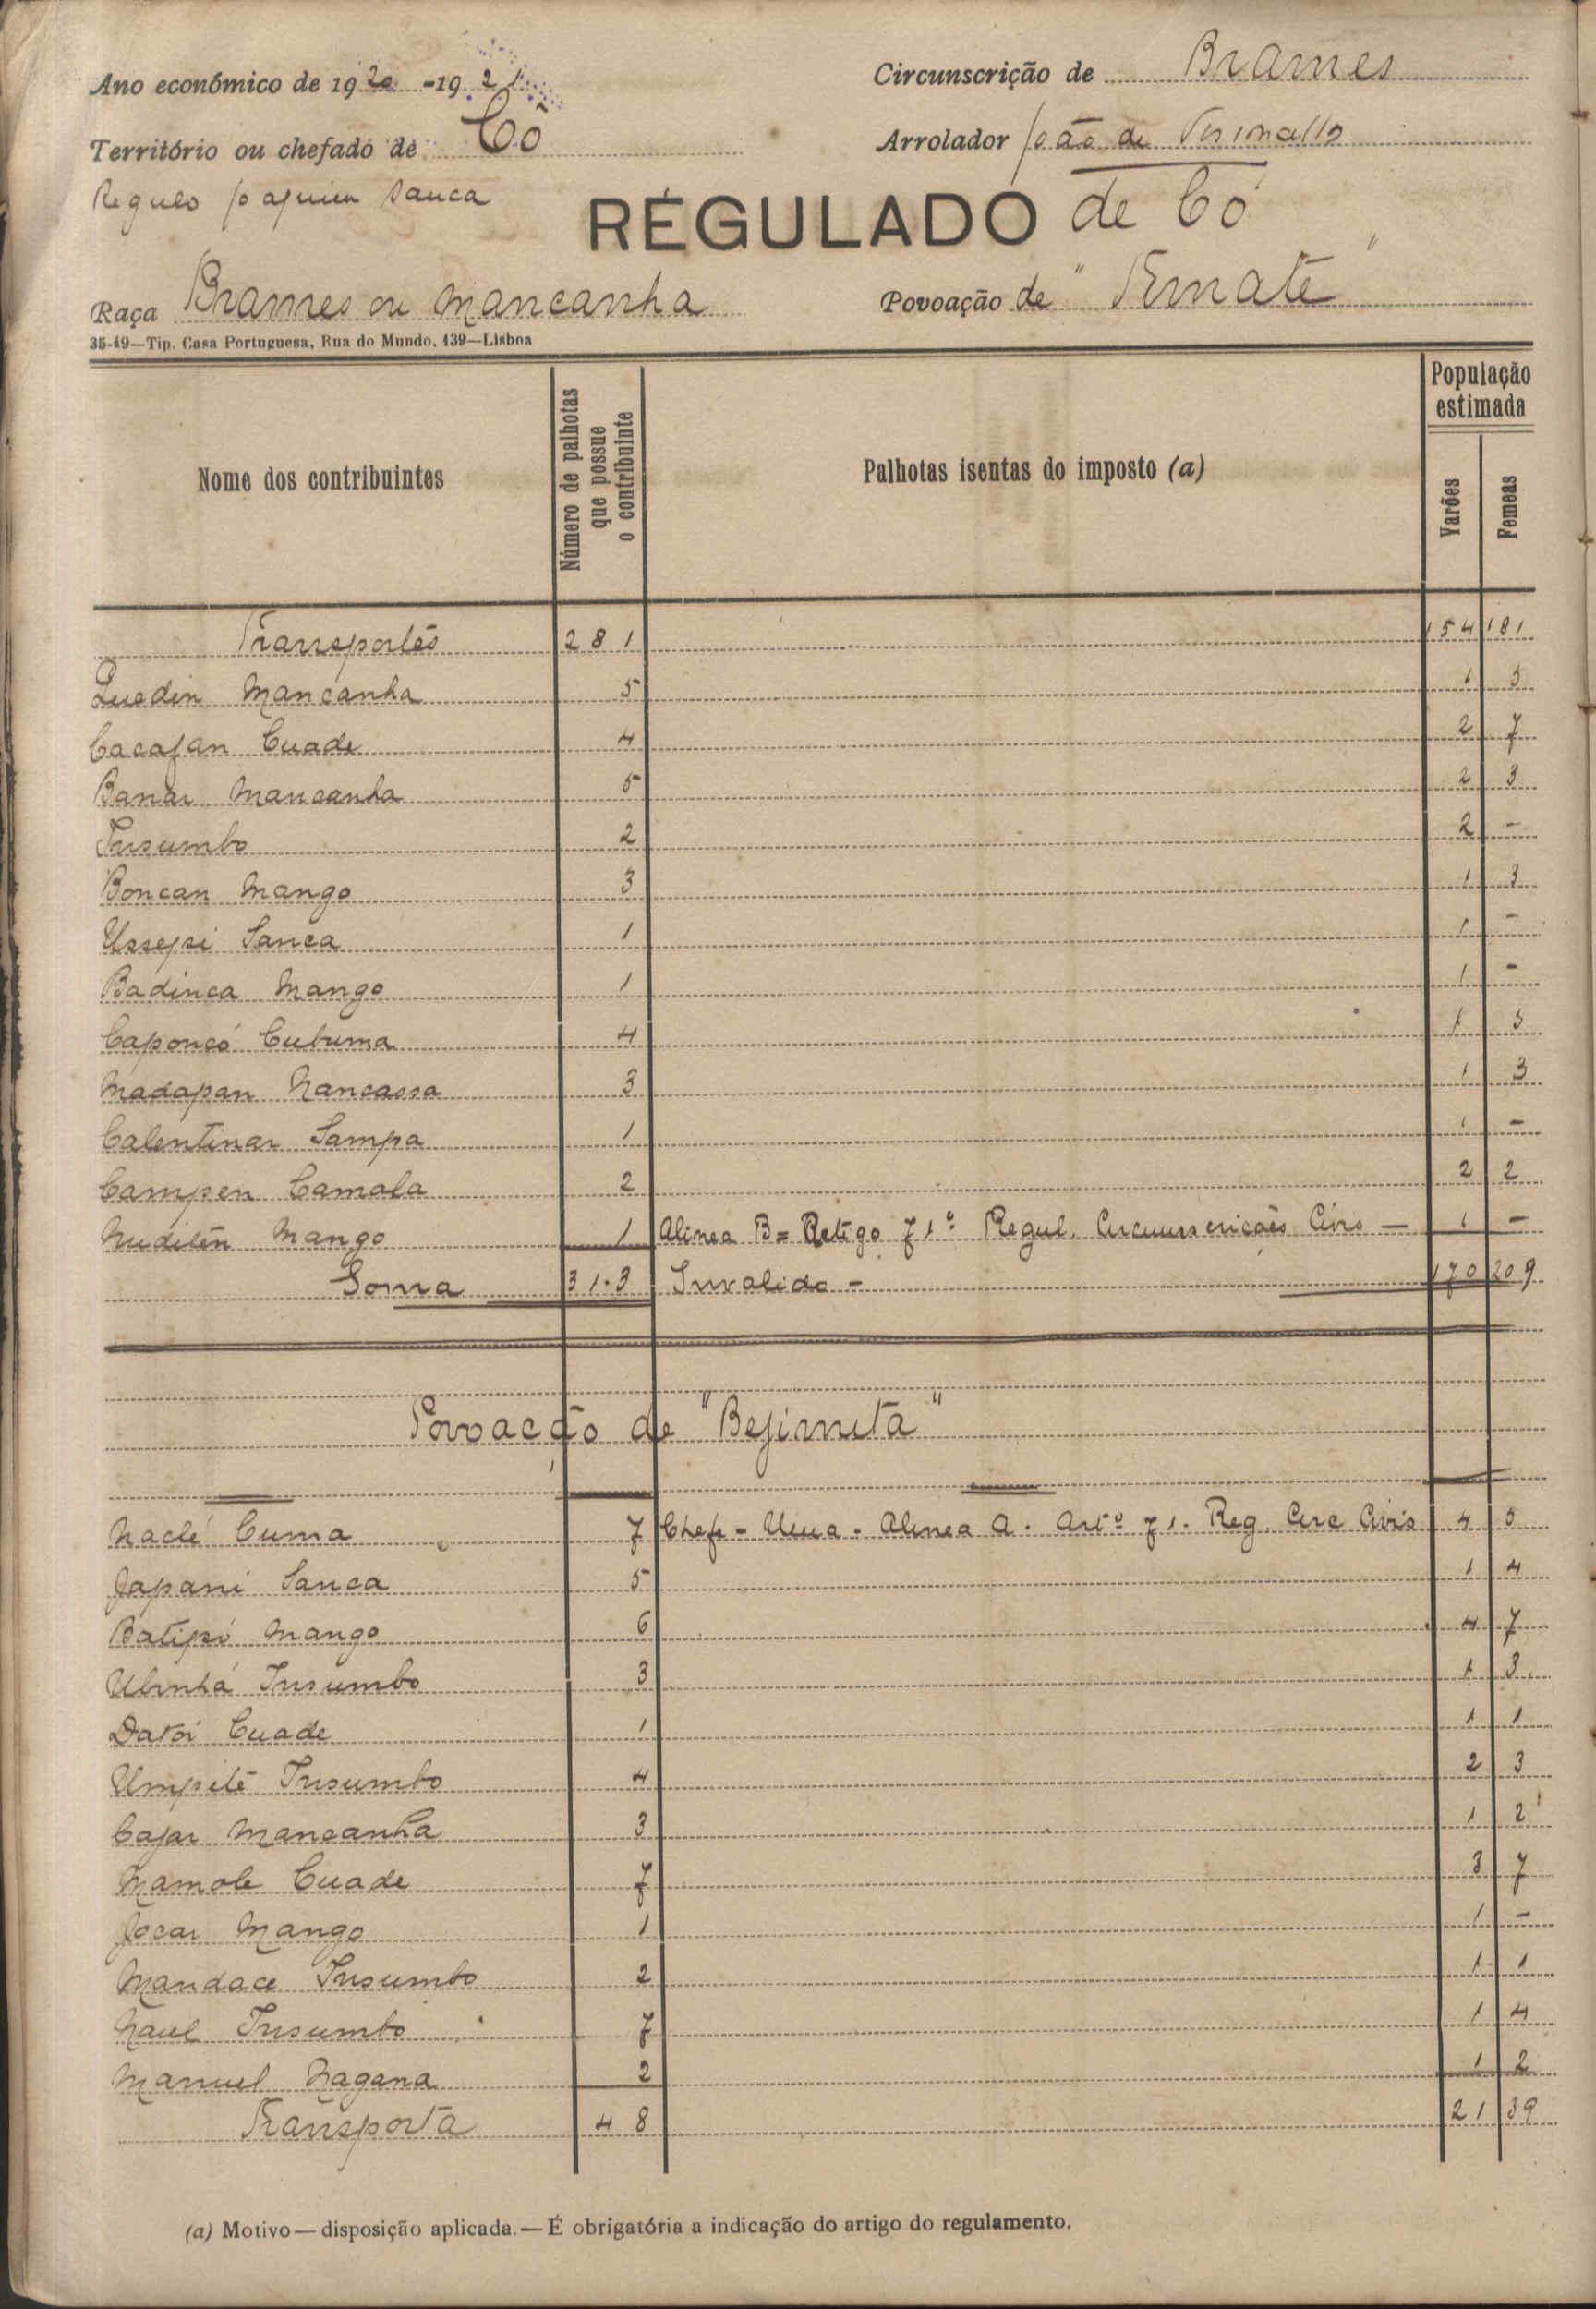 Ano económico de 1920-1921
Circunscrição de Brames
Território ou chefado de Có
Arrolador João de
Regulo Joaquim Sanca
RÉGULADO de Có
Raça Brames ou Mancanha
Povoação de "Ternate"
35-49—Tip. Casa Portuguesa, Rua do Mundo, 139—Lisboa
Nome dos contribuintes
Número de palhotas que possue o contribuinte
Palhotas isentas do imposto (a)
População estimada
Varões
Femeas
Transportes 281 154 181
Quedin Mancanha 5 1 5
Cacafan Cuade 4 2 7
Banar Mancanha 5 2 3
Insumbo 2 2 -
Boncan Mango 3 1 3
Ussepi Sanca 1 1 -
Badinca Mango 1 1 -
Caponcó Cutuma 4 1 5
Madapan Nancassa 3 1 3
Calentinar Sampa 1 1 -
Campen Camala 2 2 2
Nudilén Mango 1 Alinea B = Artigo 71º Regul. Circunscrições Civis — 1 -
Soma 313 Invalido - 170 209
Povoação de "Bejimita"
Naclé Cuma 7 Chefe - Uma - Alinea A. Artº 71. Reg. Circ Civis 4 5
Japani Sanca 5 1 4
Batipó Mango 6 4 7
Ubinhá Insumbo 3 1 3
Datói Cuade 1 1 1
Umpité Insumbo 4 2 3
Cajar Mancanha 3 1 2
Namole Cuade 7 3 7
Jocar Mango 1 1 -
Mandace Insumbo 2 1 1
Naul Insumbo 7 1 4
Manuel Nagana 2 1 2
Transporta 48 21 39
(a) Motivo — disposição aplicada. — É obrigatória a indicação do artigo do regulamento.